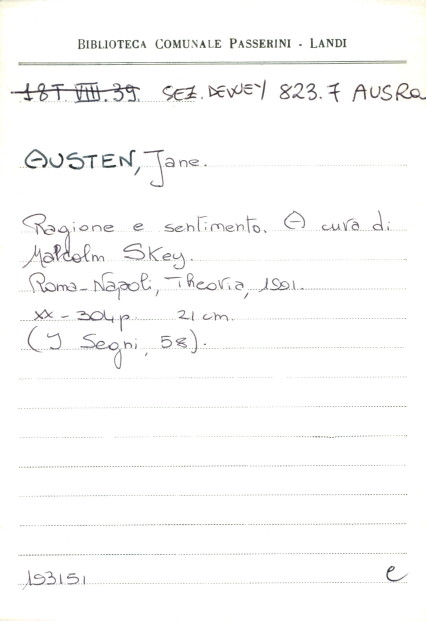 BIBLIOTECA COMUNALE PASSERINI - LANDI
18T. VIII. 39. SEZ. DEWEY 823.7 AUSRa
AUSTEN, Jane.
Ragione e sentimento. A cura di
Malcolm Skey.
Roma-Napoli, Theoria, 1991.
XX - 304 p. 21 cm.
(I Segni, 58).
193151 e